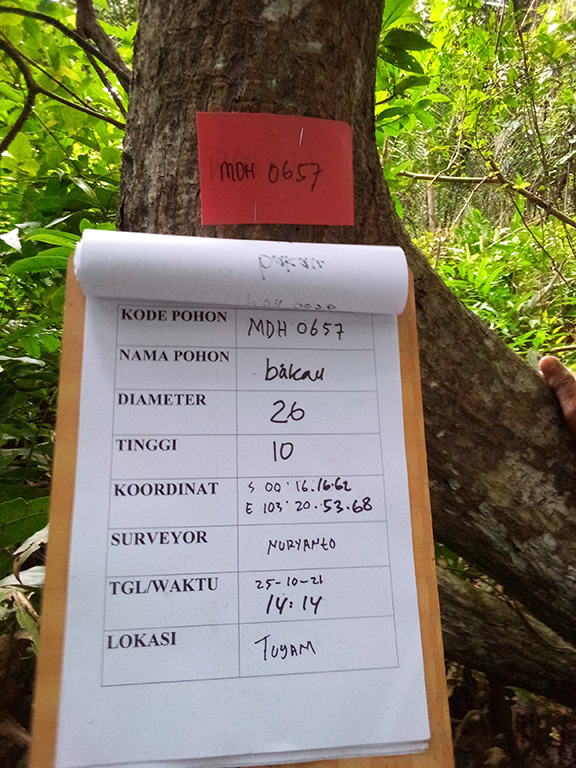 MDH 0657
bakau
KODE POHON MDH 0657
NAMA POHON bakau
DIAMETER 26
TINGGI 10
KOORDINAT S 00° 16. 16.62
E 103° 20. 53.68
SURVEYOR NURYANTO
TGL/WAKTU 25-10-21
14:14
LOKASI TUYAM